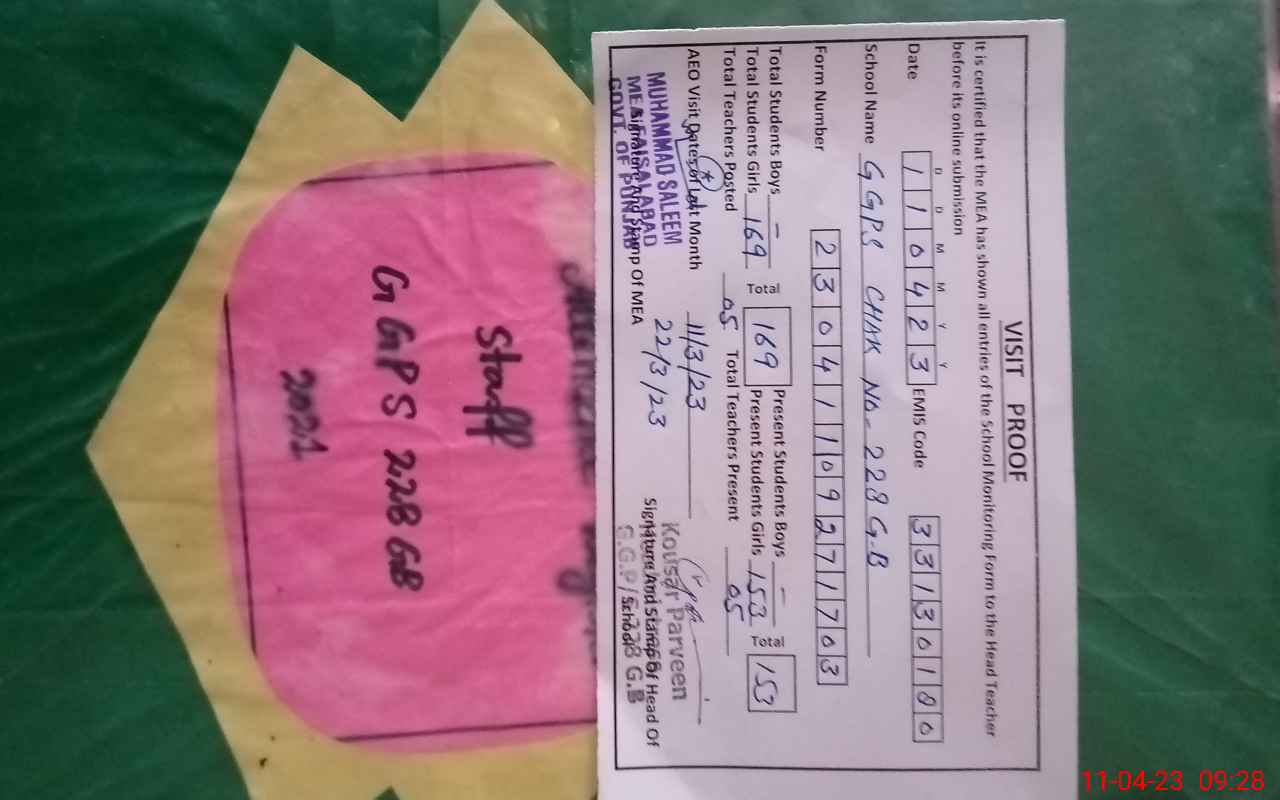 VISIT PROOF
It is certified that the MEA has shown all entries of the School Monitoring Form to the Head Teacher
before its online submission
D D M M Y Y
Date 110423 EMIS Code 33130180
School Name GGPS CHAK NO- 228 G.B
Form Number 2304110927170 3
Total Students Boys - Present Students Boys -
Total Students Girls 169 Total 169 Present Students Girls 153 Total 153
Total Teachers Posted 05 Total Teachers Present 05
AEO Visit Dates of Last Month 11/3/23
22/3/23
MUHAMMAD SALEEM
MEA FAISALABAD
GOVT. OF PUNJAB
Signature And Stamp Of MEA
Kousar Parveen
Signature And Stamp Of Head Of
School
G.G.P/S 228 G.B
Staff
G GPS 228 GB
2021
11-04-23 09:28